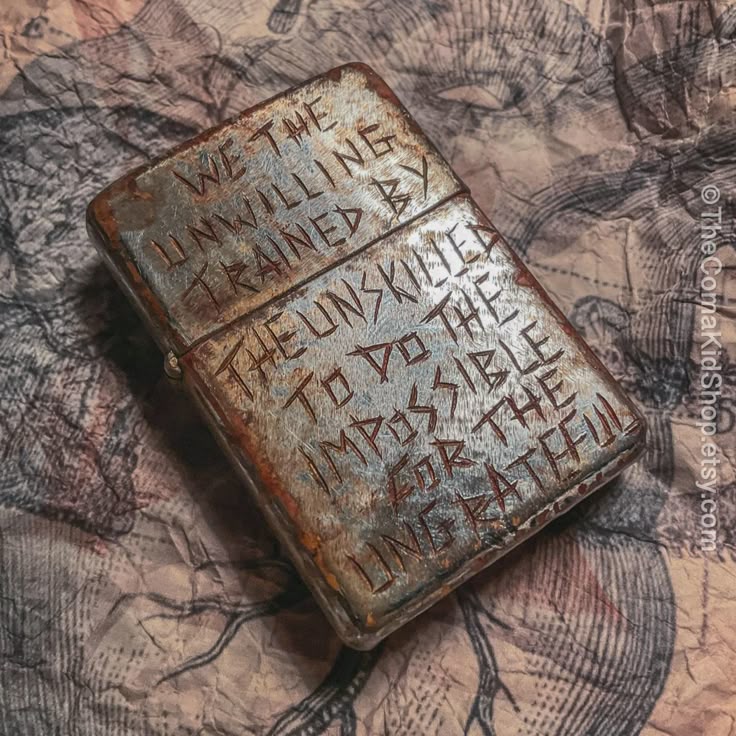 WE THE
UNWILLING
TRAINED BY
THE UNSKILLED
TO DO THE
IMPOSSIBLE
FOR THE
UNGRATEFUL
© TheComaKidShop.etsy.com